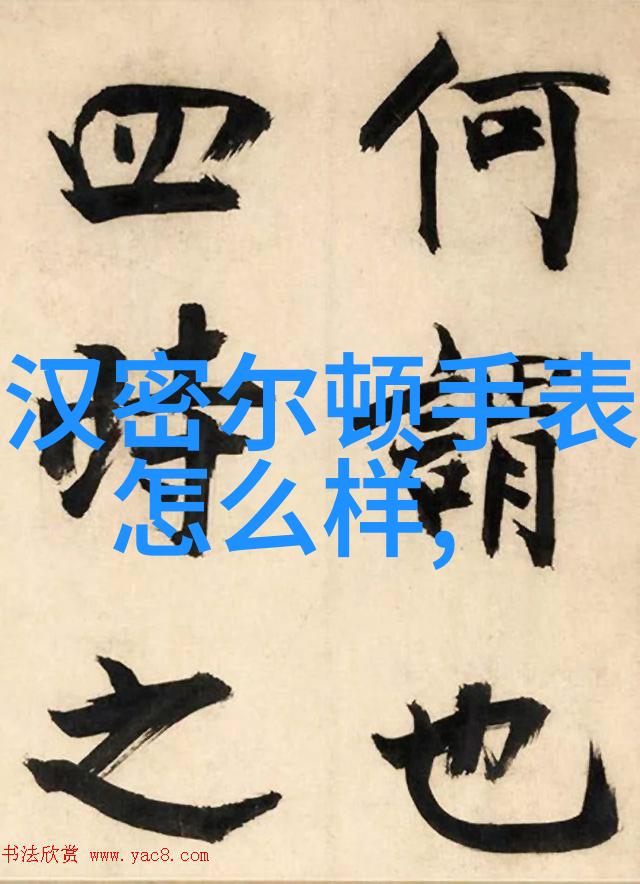 何謂也
四時之
汉密尔顿手表
怎么样,
书法欣赏 www.yac8.com